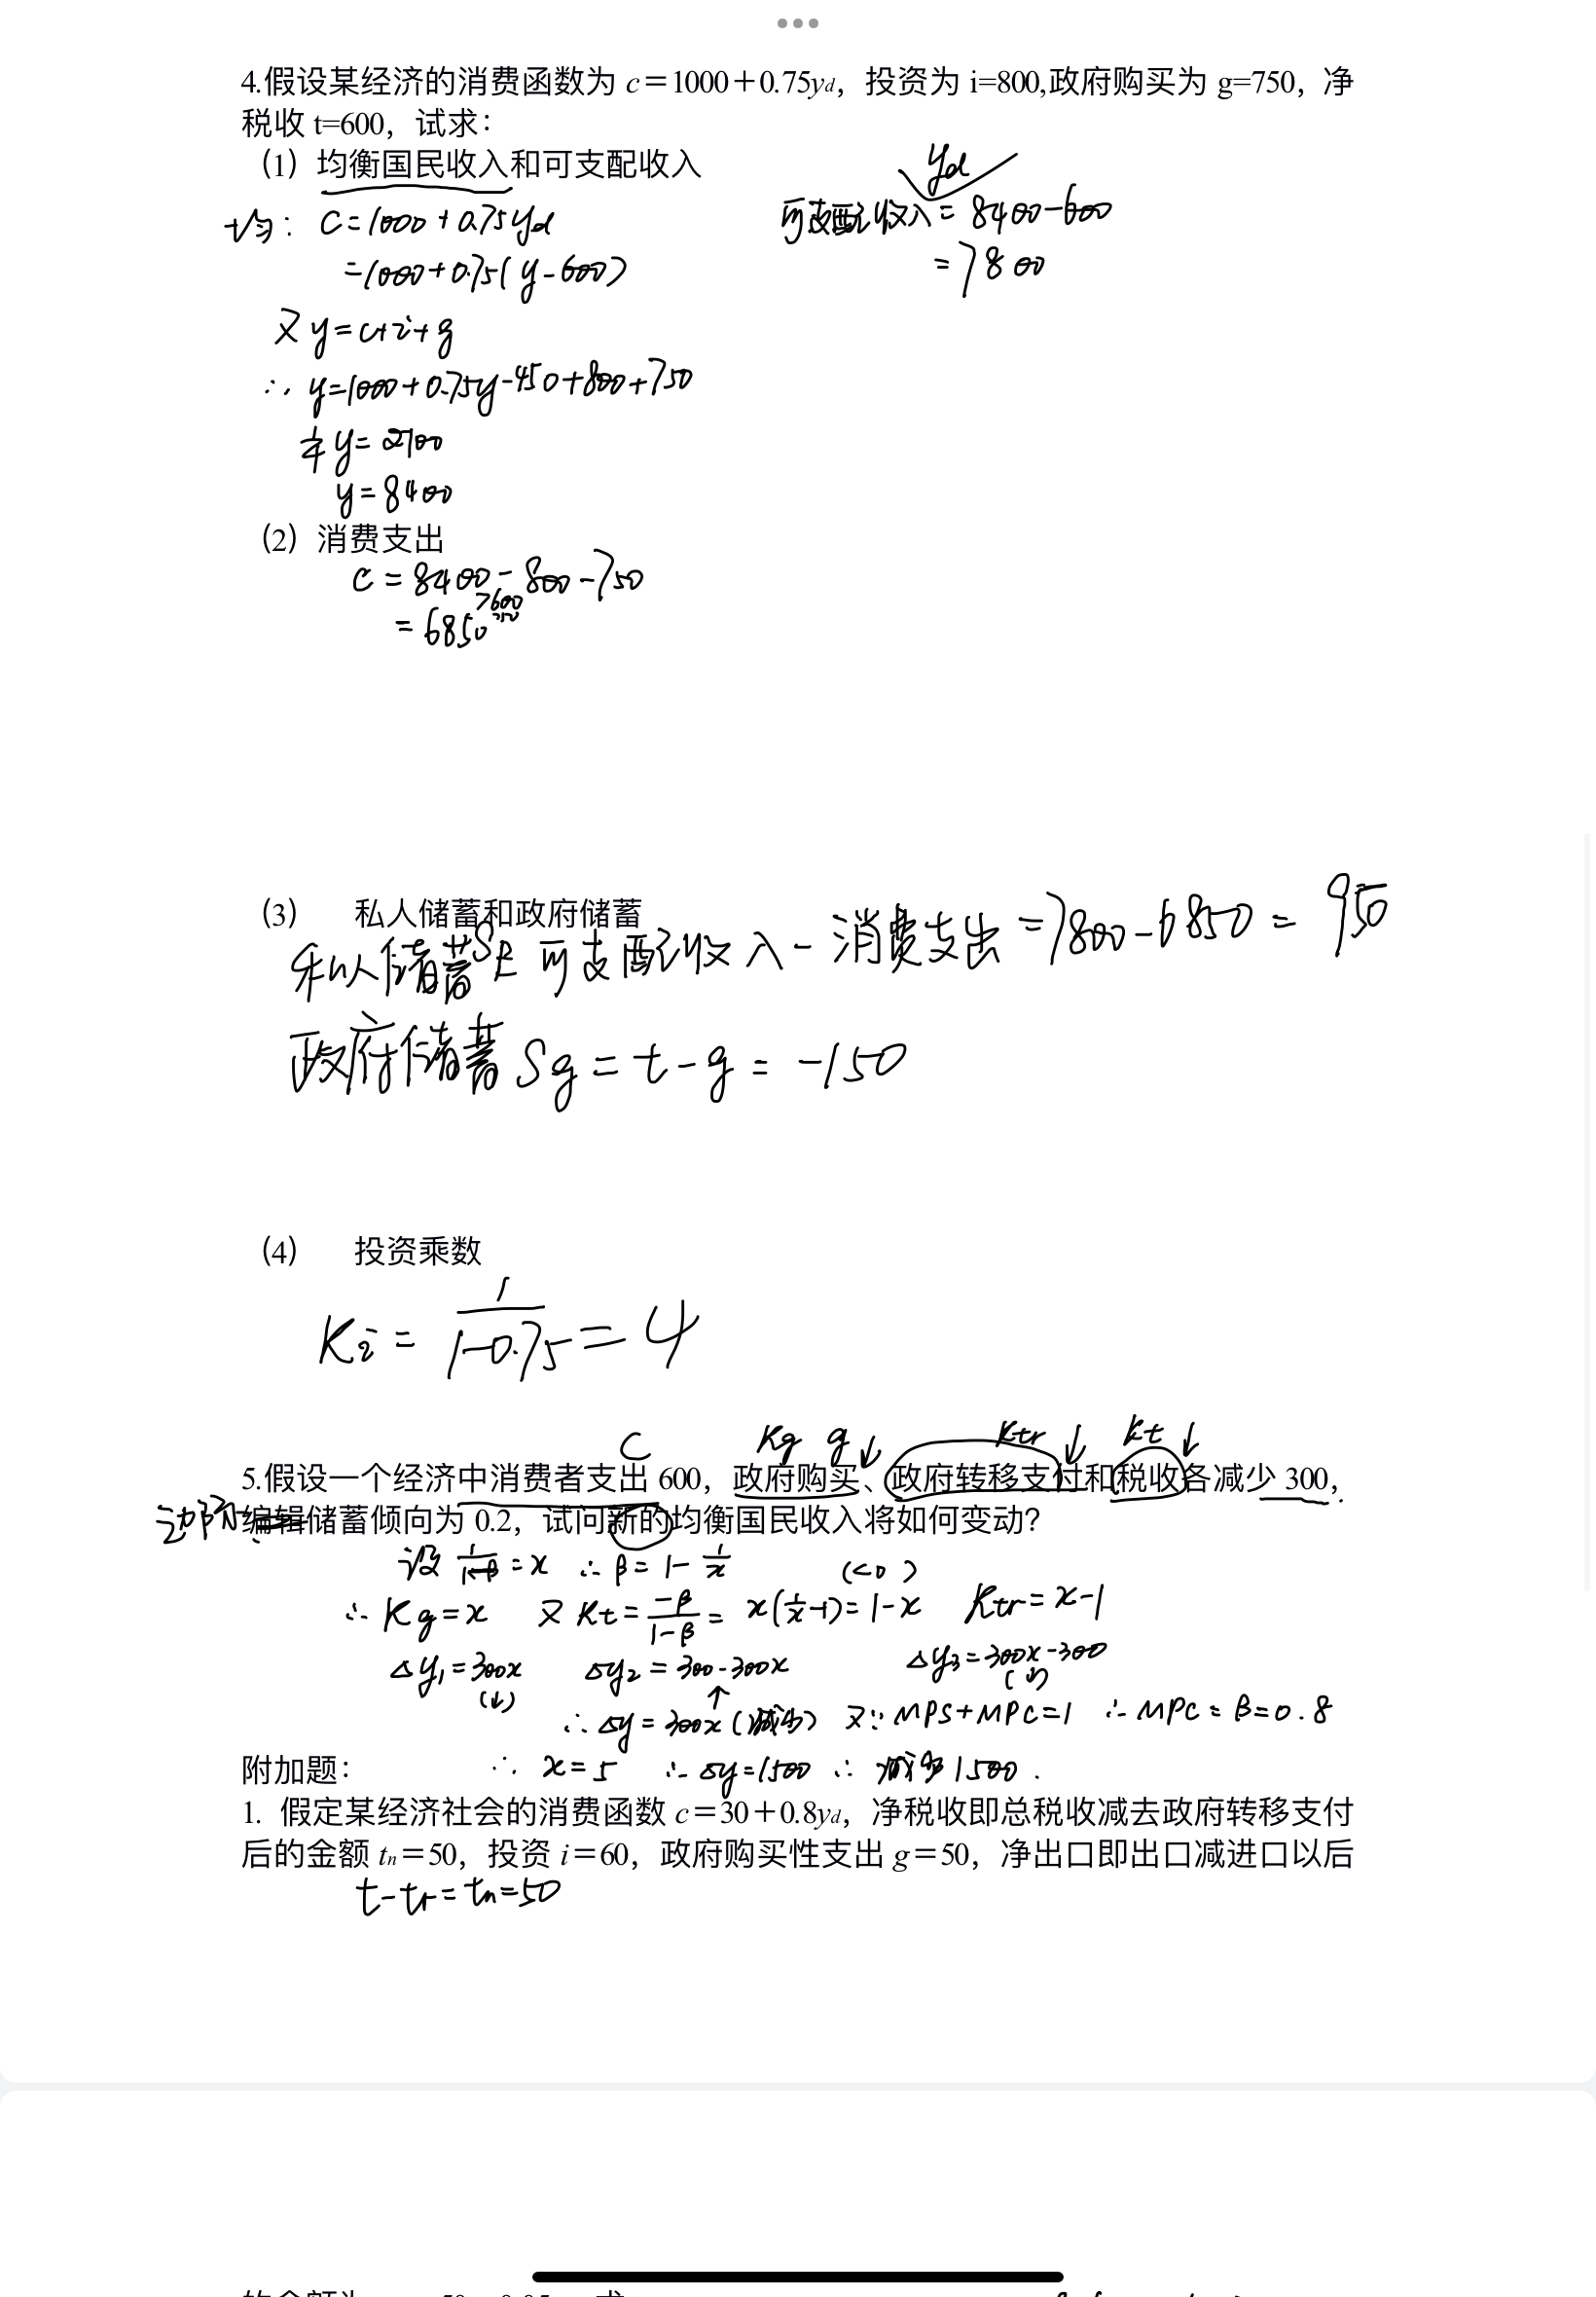 4.假设某经济的消费函数为 c＝1000＋0.75yd，投资为 i=800,政府购买为 g=750，净
税收 t=600，试求：
（1）均衡国民收入和可支配收入
yd
均： c=1000+0.75yd
可支配收入=8400-600
=1000+0.75(y-600)
=7800
又 y=c+i+g
∴ y=1000+0.75y-450+800+750
¼y=2100
y=8400
（2）消费支出
c=8400-800-750
7600
=6850
（3） 私人储蓄和政府储蓄
私人储蓄 可支配收入-消费支出=7800-6850=950
政府储蓄Sg=t-g=-150
（4） 投资乘数
Ki=1/(1-0.75)=4
C Kg g↓ Ktr↓ Kt↓
5.假设一个经济中消费者支出 600，政府购买、政府转移支付和税收各减少 300，
边际
编辑储蓄倾向为 0.2，试问新的均衡国民收入将如何变动？
设 1/(1-β)=x ∴β=1-1/x (<0)
∴Kg=x 又Kt=-β/(1-β)=x(1/x-1)=1-x Ktr=x-1
△y₁=300x △y₂=300-300x △y₃=300x-300
(↓) ↑ (↓)
∴△y=300x(减少) 又∵MPS+MPC=1 ∴MPC=β=0.8
附加题： ∴x=5 ∴△y=1500 ∴减少1500.
1. 假定某经济社会的消费函数 c＝30＋0.8yd，净税收即总税收减去政府转移支付
后的金额 tn＝50，投资 i＝60，政府购买性支出 g＝50，净出口即出口减进口以后
t-tr=tn=50